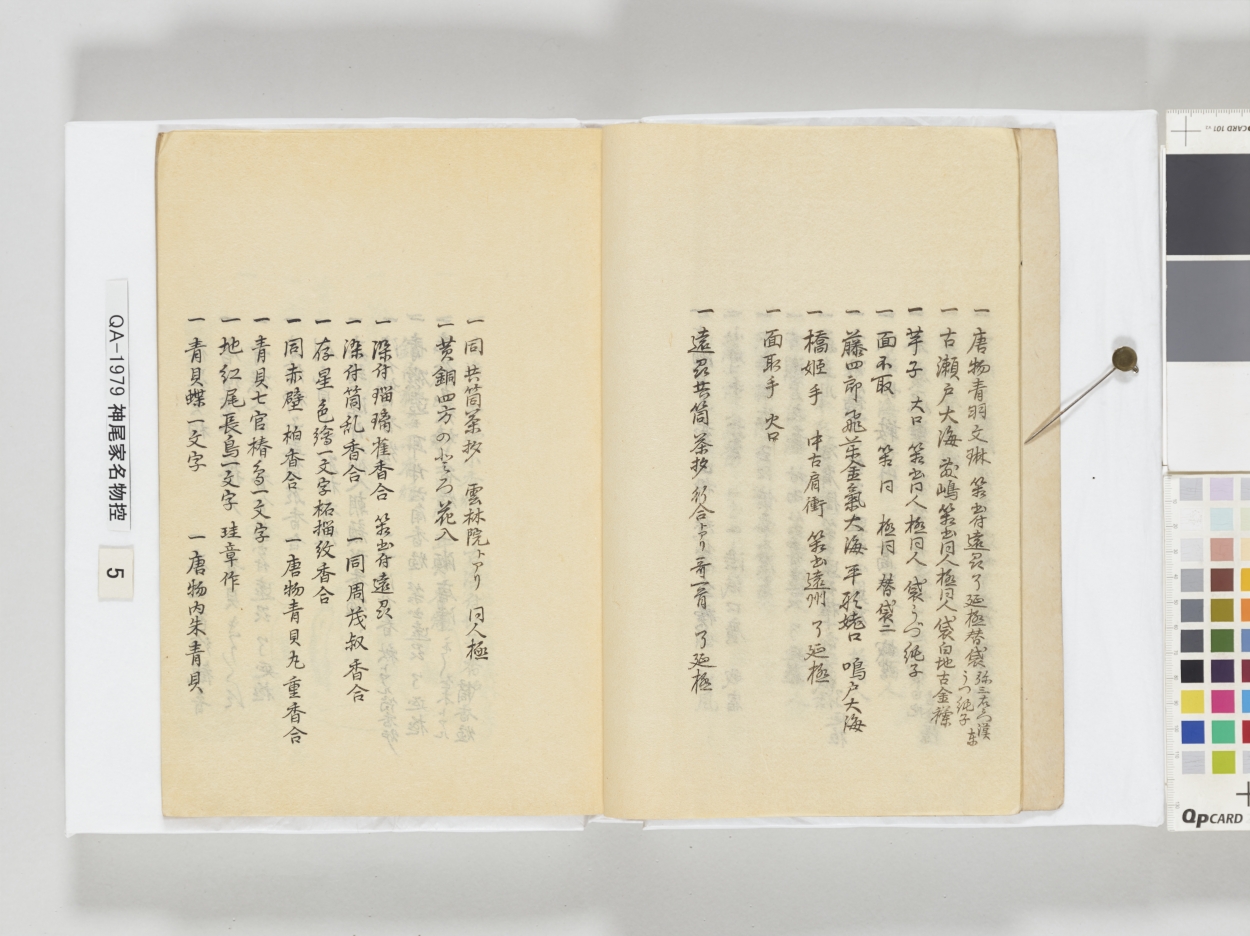 一 唐物青羽文琳 箱書付遠州 了延極 替袋 弥三右衛門漢東 うつ純子
一 古瀬戸大海 箱書同人極同人 袋白地古金襴
一 芋子 大口 箱書同人極同人 袋うづ純子
一 面不取 箱同 極同 替袋二
一 藤四郎 飛茶金氣大海 平形姥口 鳴戸大海
一 橋姫手 中古肩衝 箱書遠州 了延極
一 面取手 火口
一 遠州共筒茶抄 哥一首 了延極
一 同 共筒茶抄 雲林院トアリ 同人極
一 黄銅四方の 花入
一 染付瑠璃雀香合 箱書付遠州
一 染付筒乱香合 一 同周茂叔香合
一 存星 色繪一文字柘榴紋香合
一 同赤壁 柏香合 一 唐物青貝九重香合
一 青貝七官椿鳥一文字
一 地紅尾長鳥一文字 珪章作
一 青貝蝶一文字 一 唐物内朱青貝
QA-1979 神尾家名物控
5
CARD 101
QPCARD